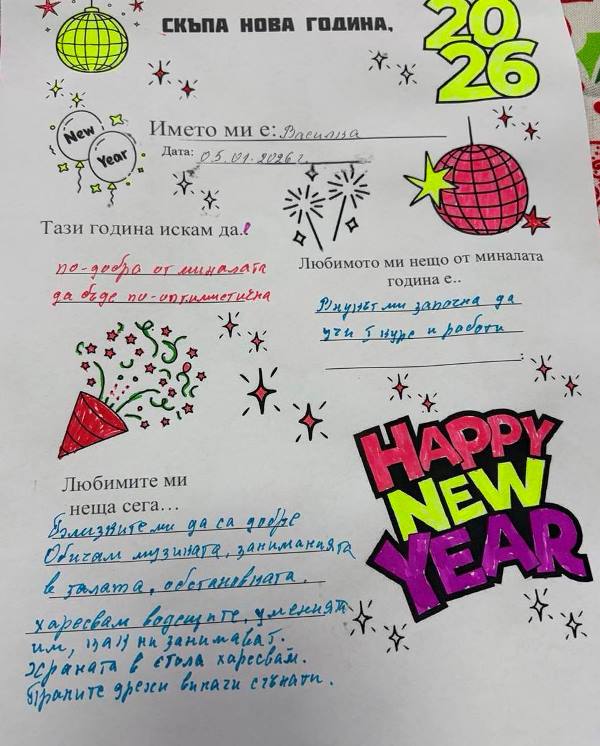 СКЪПА НОВА ГОДИНА,
2026
New
Year
Името ми е: Василка
Дата: 05.01.2026 г.
Тази година искам да..
по-добра от миналата
да бъде по-оптимистична
Любимото ми нещо от миналата
година е..
ми започна да
учи I курс и работи
HAPPY
NEW
YEAR
Любимите ми
неща сега…
Близките ми да са добре
Обичам музиката, заниманията
в залата, обстановката.
харесвам водещите, уменията
им, как ни занимават.
Храната в стола харесвам.
дрехи винаги сгънати.